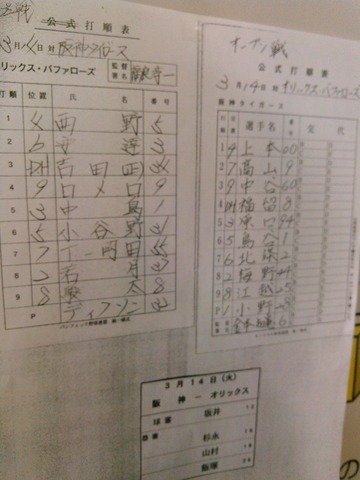 公式打順表
3月14日 対 阪神タイガース
オリックス・バファローズ 監督署名 福良淳一
打順 位置 氏名 番号
1 4 西野 5
2 6 安達 3
3 DH 吉田正
4 9 ロメロ 9
5 3 中島 1
6 5 小谷野 31
7 7 T-岡田 55
8 2 若月 37
9 8 駿太 8
P ディクソン 32
オープン戦
公式打順表
3月14日 対 オリックス・バファローズ
阪神タイガース
選手名 交代
1 4 上本 00
2 7 高山 9
3 9 中谷 60
4 DH 福留 8
5 3 原口 94
6 5 鳥谷 1
7 6 北條 2
8 2 梅野 44
9 8 江越 25
P 1 小野 28
金本知憲 6
3月14日(火)
阪神 ー オリックス
球審 坂井
塁審 杉永
山村
飯塚
の